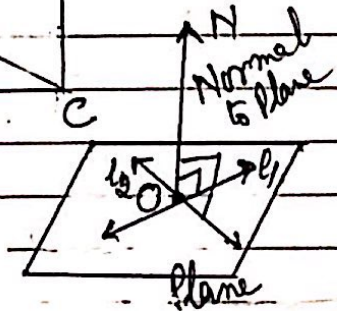 N
Normal
to Plane
C
l2
l1
O
Plane